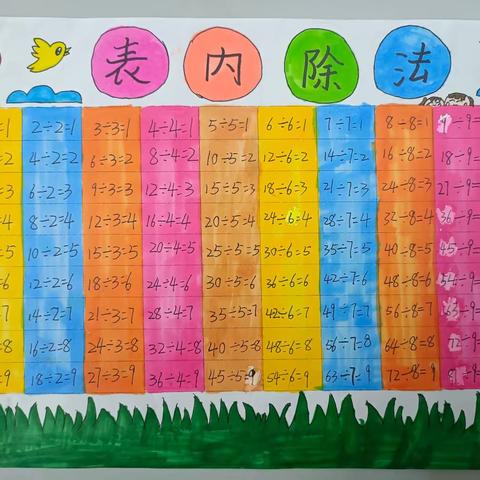 表 内 除 法
=1 2÷2=1 3÷3=1 4÷4=1 5÷5=1 6÷6=1 7÷7=1 8÷8=1 9÷9=
=2 4÷2=2 6÷3=2 8÷4=2 10÷5=2 12÷6=2 14÷7=2 16÷8=2 18÷9=
=3 6÷2=3 9÷3=3 12÷4=3 15÷5=3 18÷6=3 21÷7=3 24÷8=3 27÷9=
=4 8÷2=4 12÷3=4 16÷4=4 20÷5=4 24÷6=4 28÷7=4 32÷8=4 36÷9=
=5 10÷2=5 15÷3=5 20÷4=5 25÷5=5 30÷6=5 35÷7=5 40÷8=5 45÷9=
=6 12÷2=6 18÷3=6 24÷4=6 30÷5=6 36÷6=6 42÷7=6 48÷8=6 54÷9=
=7 14÷2=7 21÷3=7 28÷4=7 35÷5=7 42÷6=7 49÷7=7 56÷8=7 63÷9=
=8 16÷2=8 24÷3=8 32÷4=8 40÷5=8 48÷6=8 56÷7=8 64÷8=8 72÷9=
=9 18÷2=9 27÷3=9 36÷4=9 45÷5=9 54÷6=9 63÷7=9 72÷8=9 81÷9=